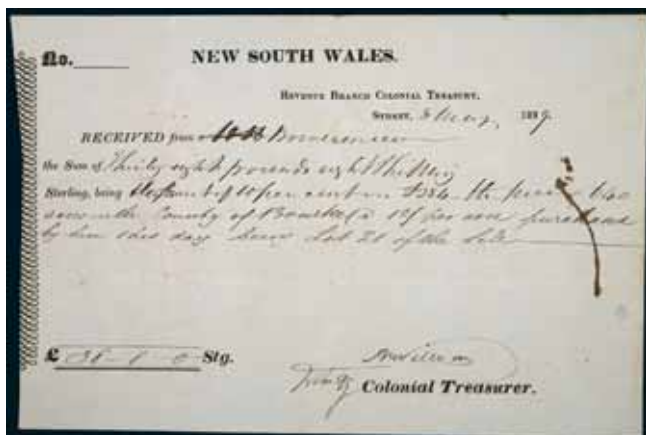 No.
NEW SOUTH WALES.
REVENUE BRANCH COLONIAL TREASURY,
SYDNEY, May, 1839.
RECEIVED from
the Sum of Thirty eight pounds eight shillings
Sterling, being deposit of 10 per cent on £384 the price 640
acres in the County of Bourke @ 12/ per acre purchased
by him this day being Lot 20 of the Sale
£ 38 - 8 - 0 Stg.
Colonial Treasurer.